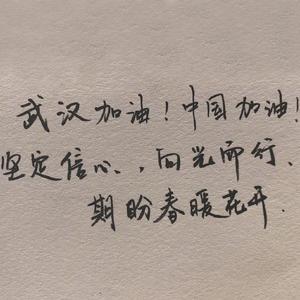 武汉加油!中国加油!
坚定信心、,向光而行、
期盼春暖花开.